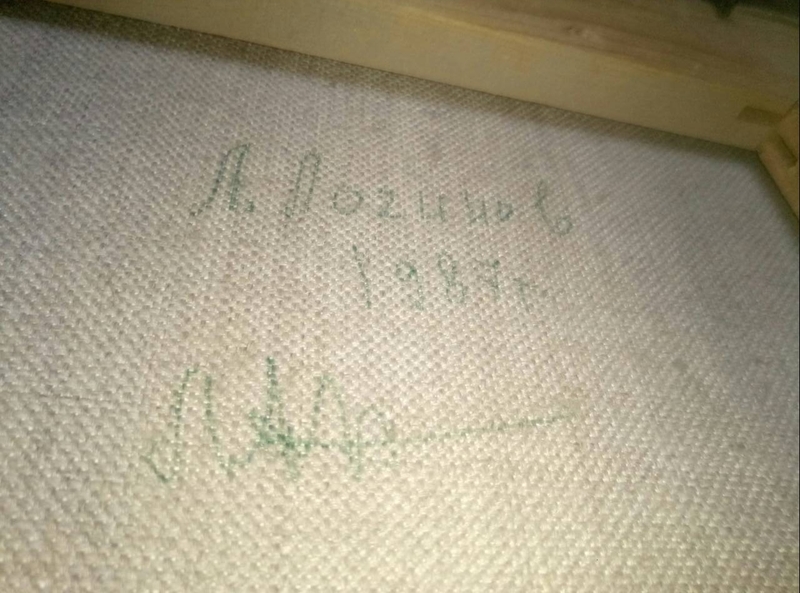 Л. Логинов
1987г.